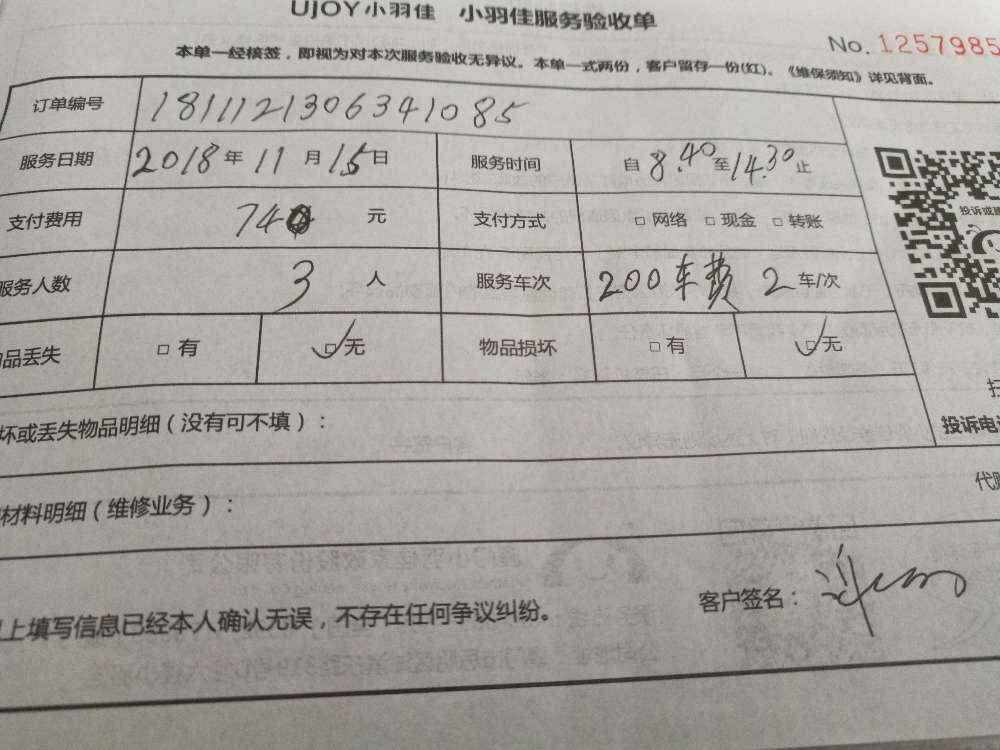 UJOY小羽佳 小羽佳服务验收单
No. 1257985
本单一经核签，即视为对本次服务验收无异议。本单一式两份，客户留存一份(红)。《维保须知》详见背面。
订单编号 1811121306341085
服务日期 2018 年 11 月 15 日 服务时间 自 8.40 至 14.30 止
支付费用 740 元 支付方式 □ 网络 □ 现金 □ 转账
服务人数 3 人 服务车次 200车费 2 车/次
品丢失 □ 有 □ 无 物品损坏 □ 有 □ 无
坏或丢失物品明细（没有可不填）：
投诉电
代
材料明细（维修业务）：
上填写信息已经本人确认无误，不存在任何争议纠纷。
客户签名：